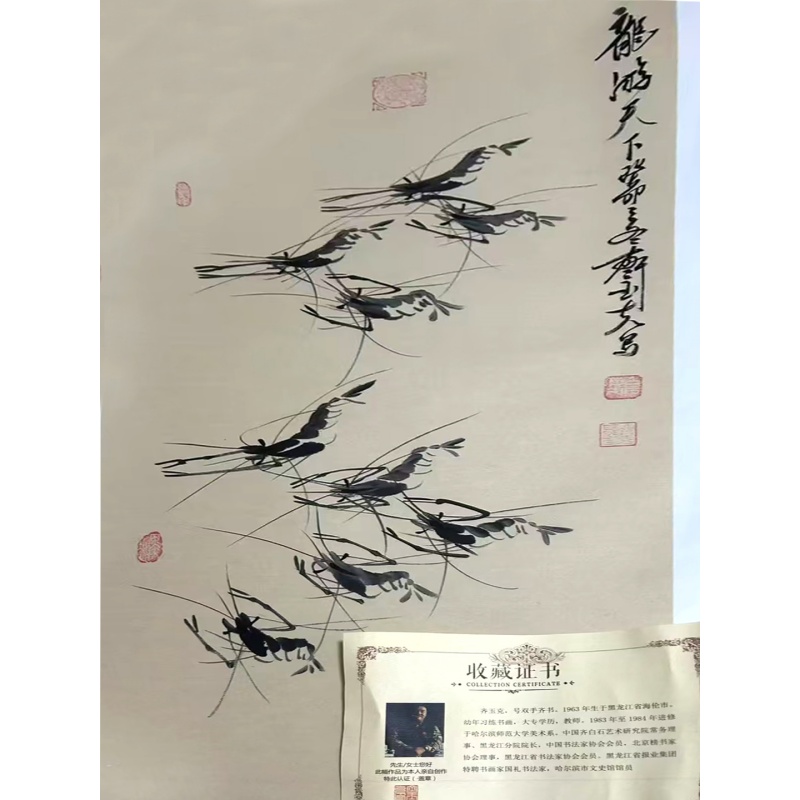 龍游天下
收藏证书
COLLECTION CERTIFICATE
齐玉克，号双手齐书，1963年生于黑龙江省海伦市，
幼年习练书画，大专学历，教师。1983年至1984年进修
于哈尔滨师范大学美术系，中国齐白石艺术研究院常务理
事，黑龙江分院院长，中国书法家协会会员，北京楼书家
协会理事，黑龙江省书法家协会会员，黑龙江省报业集团
特聘书画家国礼书法家，哈尔滨市文史馆馆员
先生/女士您好
此幅作品为本人亲自创作
特此认证（盖章）